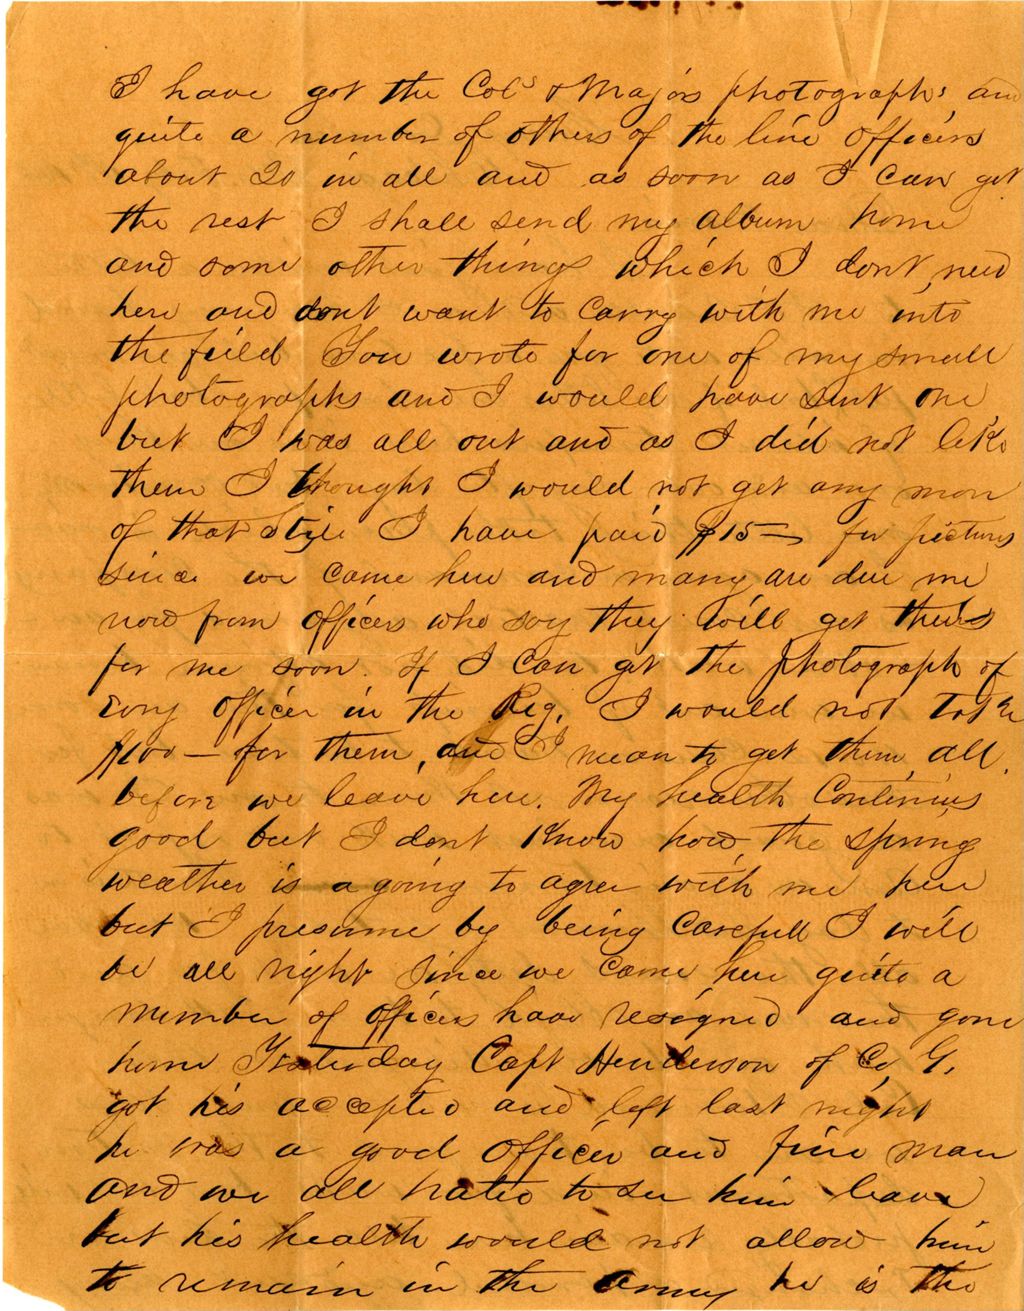 I have got the Cols & Majors photographs and
quite a number of others of the line officers
about 20 in all and as soon as I can get
the rest I shall send my album home
and some other things which I dont need
here and dont want to carry with me into
the feild You wrote for one of my small
photographs and I would have sent one
but I was all out and as I did not like
them I thought I would not get any more
of that stile I have paid $15 — for pictures
since we came here and many are due me
now from officers who say they will get theirs
for me soon. If I can get the photograph of
evry officer in the Reg. I would not take
$100 — for them, and I mean to get them all
before we leave here. My health continues
good but I dont know how the spring
weather is a going to agree with me here
but I presume by being carefull I will
be all right Since we came here quite a
number of officers have resigned and gone
home Yesterday Capt Henderson of Co, G,
got his accepted and left last night
he was a good officer and fine man
and we all hated to see him leave
but his health would not allow him
to remain in the army he is the